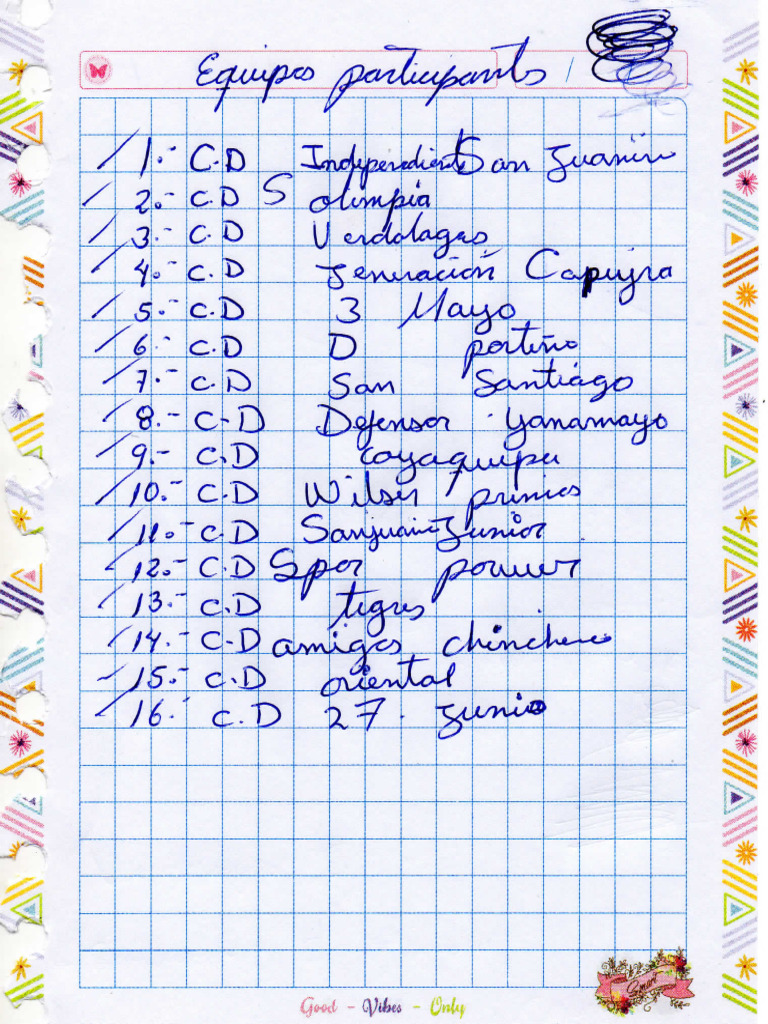 Equipos participants
1.- C.D Independiente San Juanin
2.- C.D S olimpia
3.- C.D Verdolagas
4.- C.D Jeneración Capujra
5.- C.D 3 Mayo
6.- C.D D porteño
7.- C.D San Santiago
8.- C-D Defensor Yanamayo
9.- C.D Coyaquipa
10.- C.D Wilser primios
11.- C.D Sanjuanin Junior
12.- C.D Spor power
13.- C.D tigres
14.- C-D amigos chinchero
15.- C.D oriental
16.- C.D 27 Junio
Good - Vibes - Only
Smart